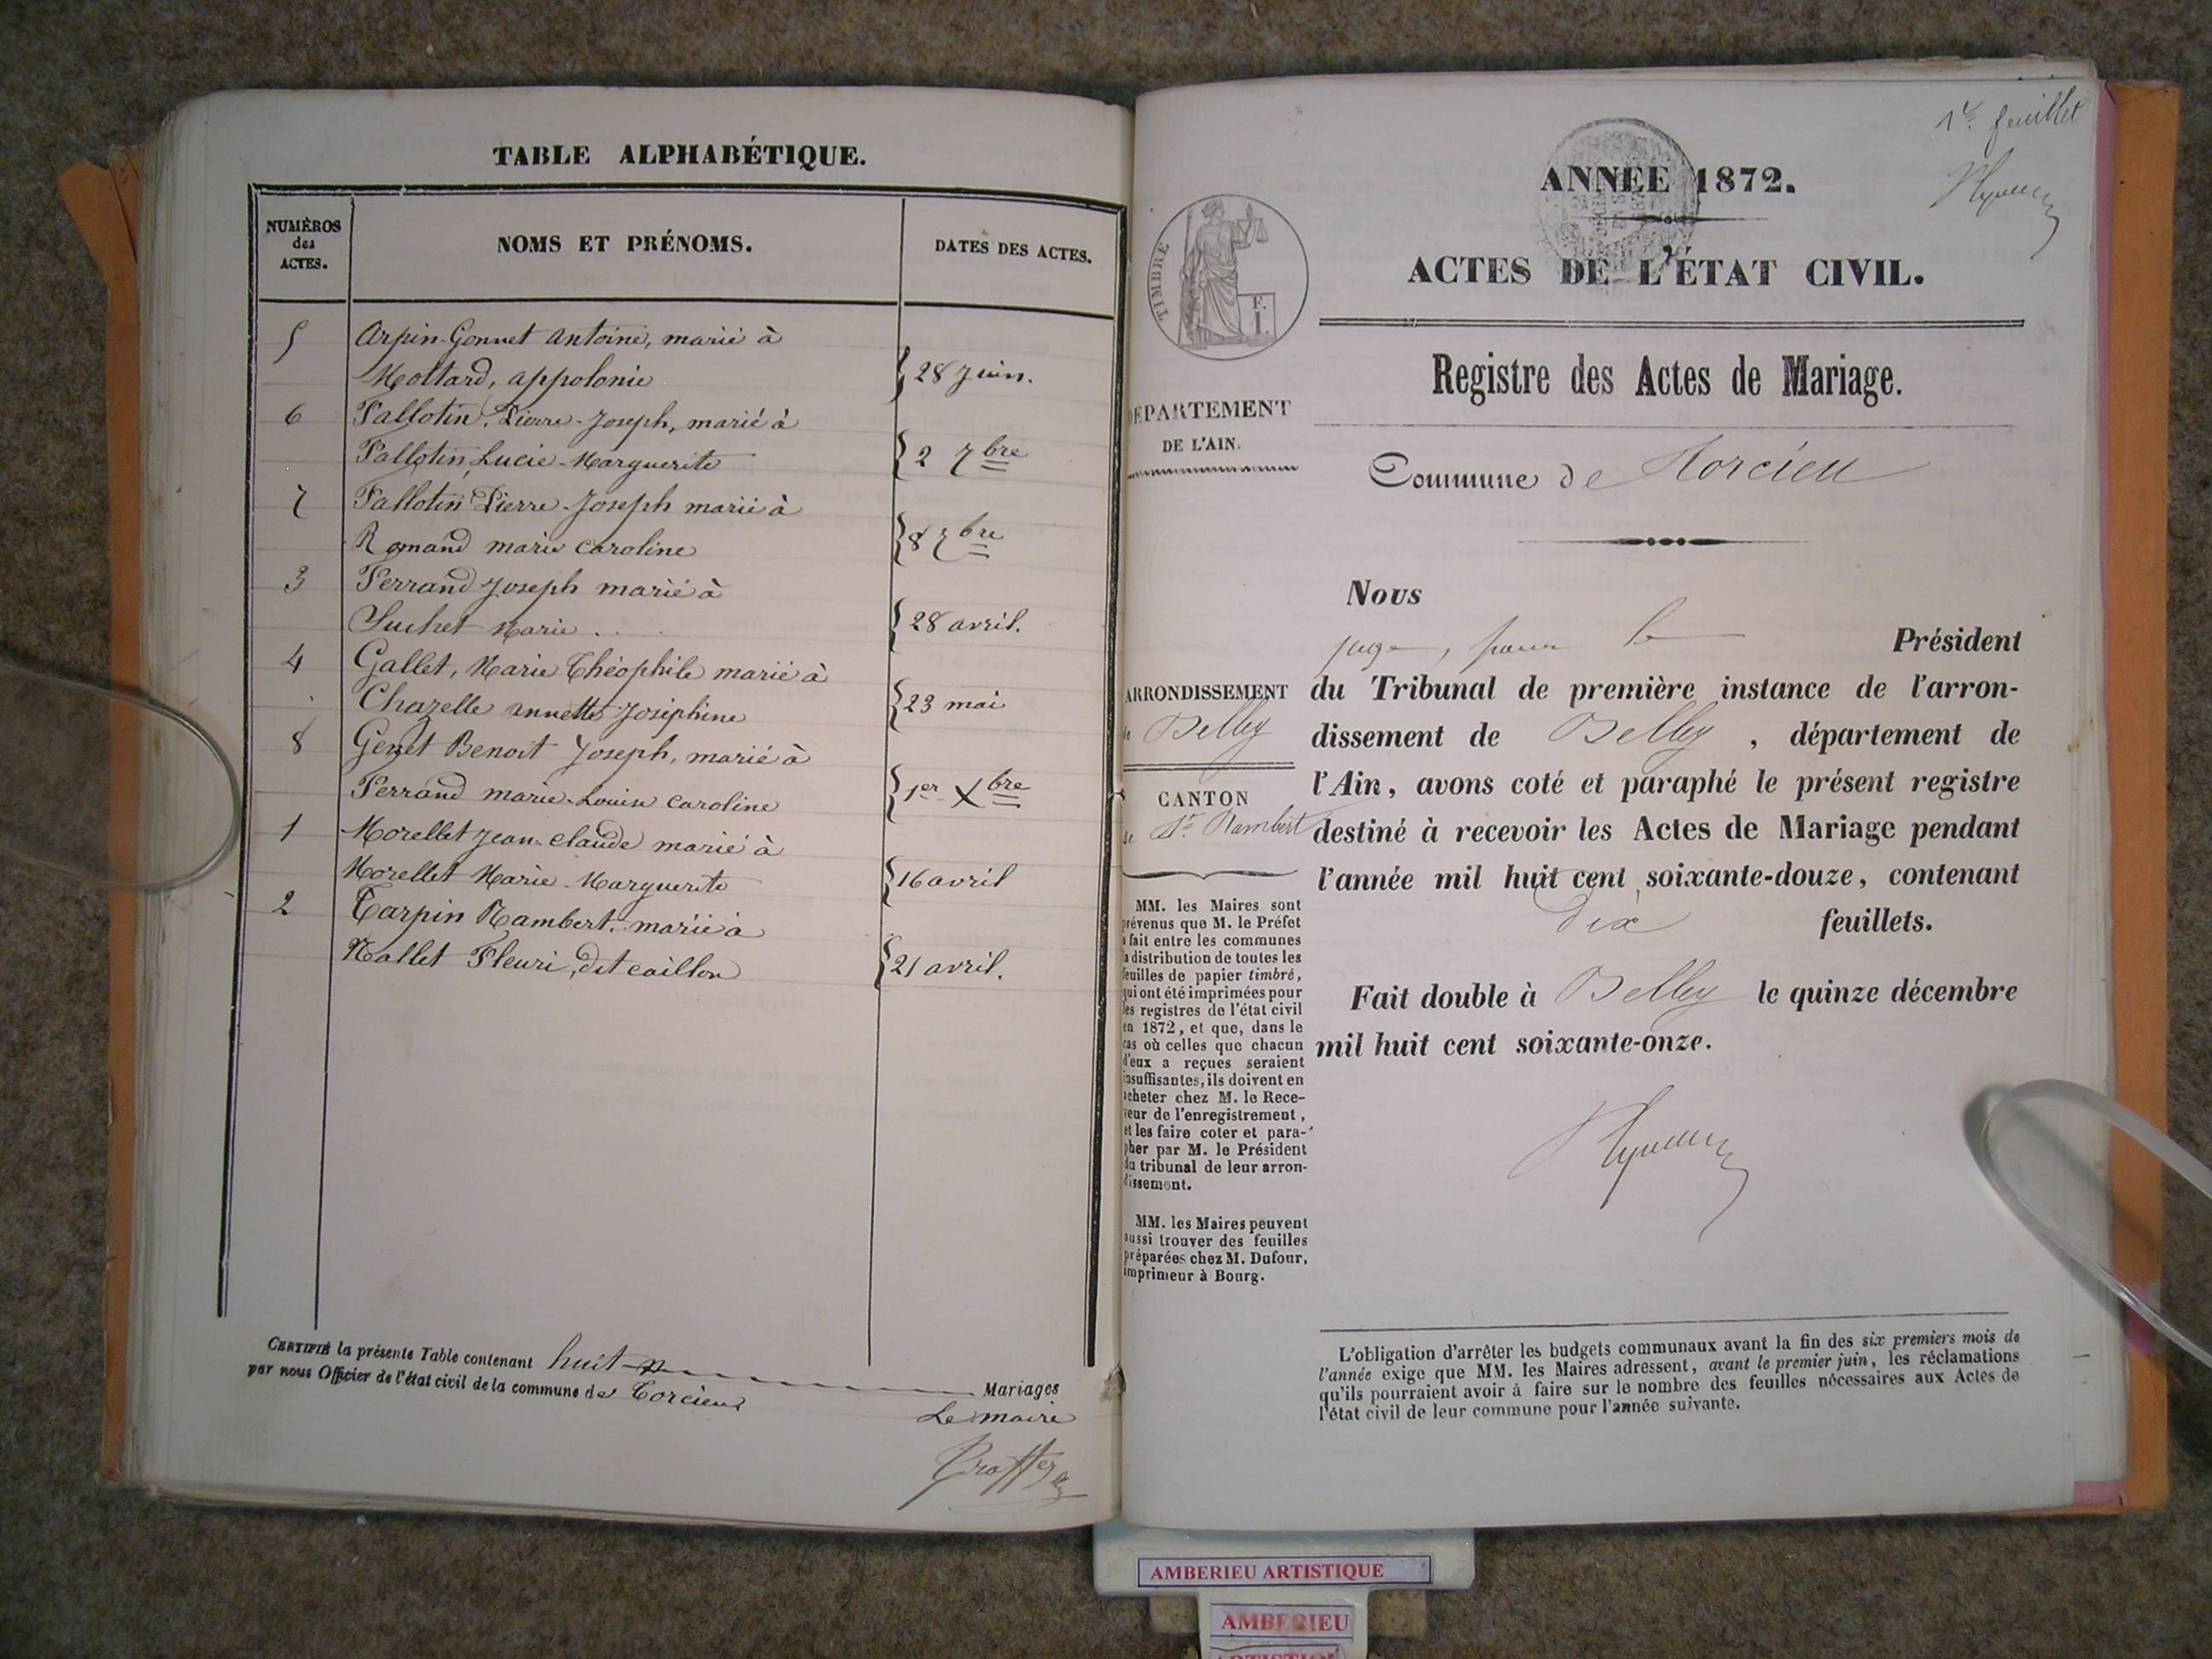 TABLE ALPHABÉTIQUE.
NUMÉROS des ACTES.
NOMS ET PRÉNOMS.
DATES DES ACTES.
5 Arpin-Gonnet Antoine, marié à
Mottard, appolonie 28 Juin.
6 Fallotin, Pierre-Joseph, marié à
Fallotin, Lucie-Marguerite 2 7bre
7 Fallotin Pierre-Joseph marié à
Romand marie Caroline 8 7bre
3 Ferrand Joseph marié à
Suchet Marie .. 28 avril.
4 Gallet, Marie Théophile marié à
Chazelle annette Joséphine 23 mai
8 Genet Benoit Joseph, marié à
Ferrand marie-Louise Caroline 1er Xbre
1 Morellet Jean-Claude marié à
Morellet Marie-Marguerite 16 avril
2 Tarpin Rambert, marié à
Nallet Fleuri, dit caillon 21 avril.
CERTIFIÉ la présente Table contenant huit Mariages
par nous Officier de l'état civil de la commune de Torcieu
Le maire
1er feuillet
ANNÉE 1872.
ACTES DE L'ÉTAT CIVIL.
TIMBRE
F.
I.
Registre des Actes de Mariage.
DÉPARTEMENT
DE L'AIN.
Commune de Torcieu
Nous
juge, pour le Président
du Tribunal de première instance de l'arron-
dissement de Belley, département de
l'Ain, avons coté et paraphé le présent registre
destiné à recevoir les Actes de Mariage pendant
l'année mil huit cent soixante-douze, contenant
dix feuillets.
Fait double à Belley le quinze décembre
mil huit cent soixante-onze.
ARRONDISSEMENT
de Belley
CANTON
de St. Rambert
MM. les Maires sont
prévenus que M. le Préfet
a fait entre les communes
la distribution de toutes les
feuilles de papier timbré,
qui ont été imprimées pour
les registres de l'état civil
en 1872, et que, dans le
cas où celles que chacun
d'eux a reçues seraient
insuffisantes, ils doivent en
acheter chez M. le Rece-
veur de l'enregistrement,
et les faire coter et para-
pher par M. le Président
du tribunal de leur arron-
dissement.
MM. les Maires peuvent
aussi trouver des feuilles
préparées chez M. Dufour,
imprimeur à Bourg.
L'obligation d'arrêter les budgets communaux avant la fin des six premiers mois de
l'année exige que MM. les Maires adressent, avant le premier juin, les réclamations
qu'ils pourraient avoir à faire sur le nombre des feuilles nécessaires aux Actes de
l'état civil de leur commune pour l'année suivante.
AMBERIEU ARTISTIQUE
AMBERIEU
ARTISTIQUE